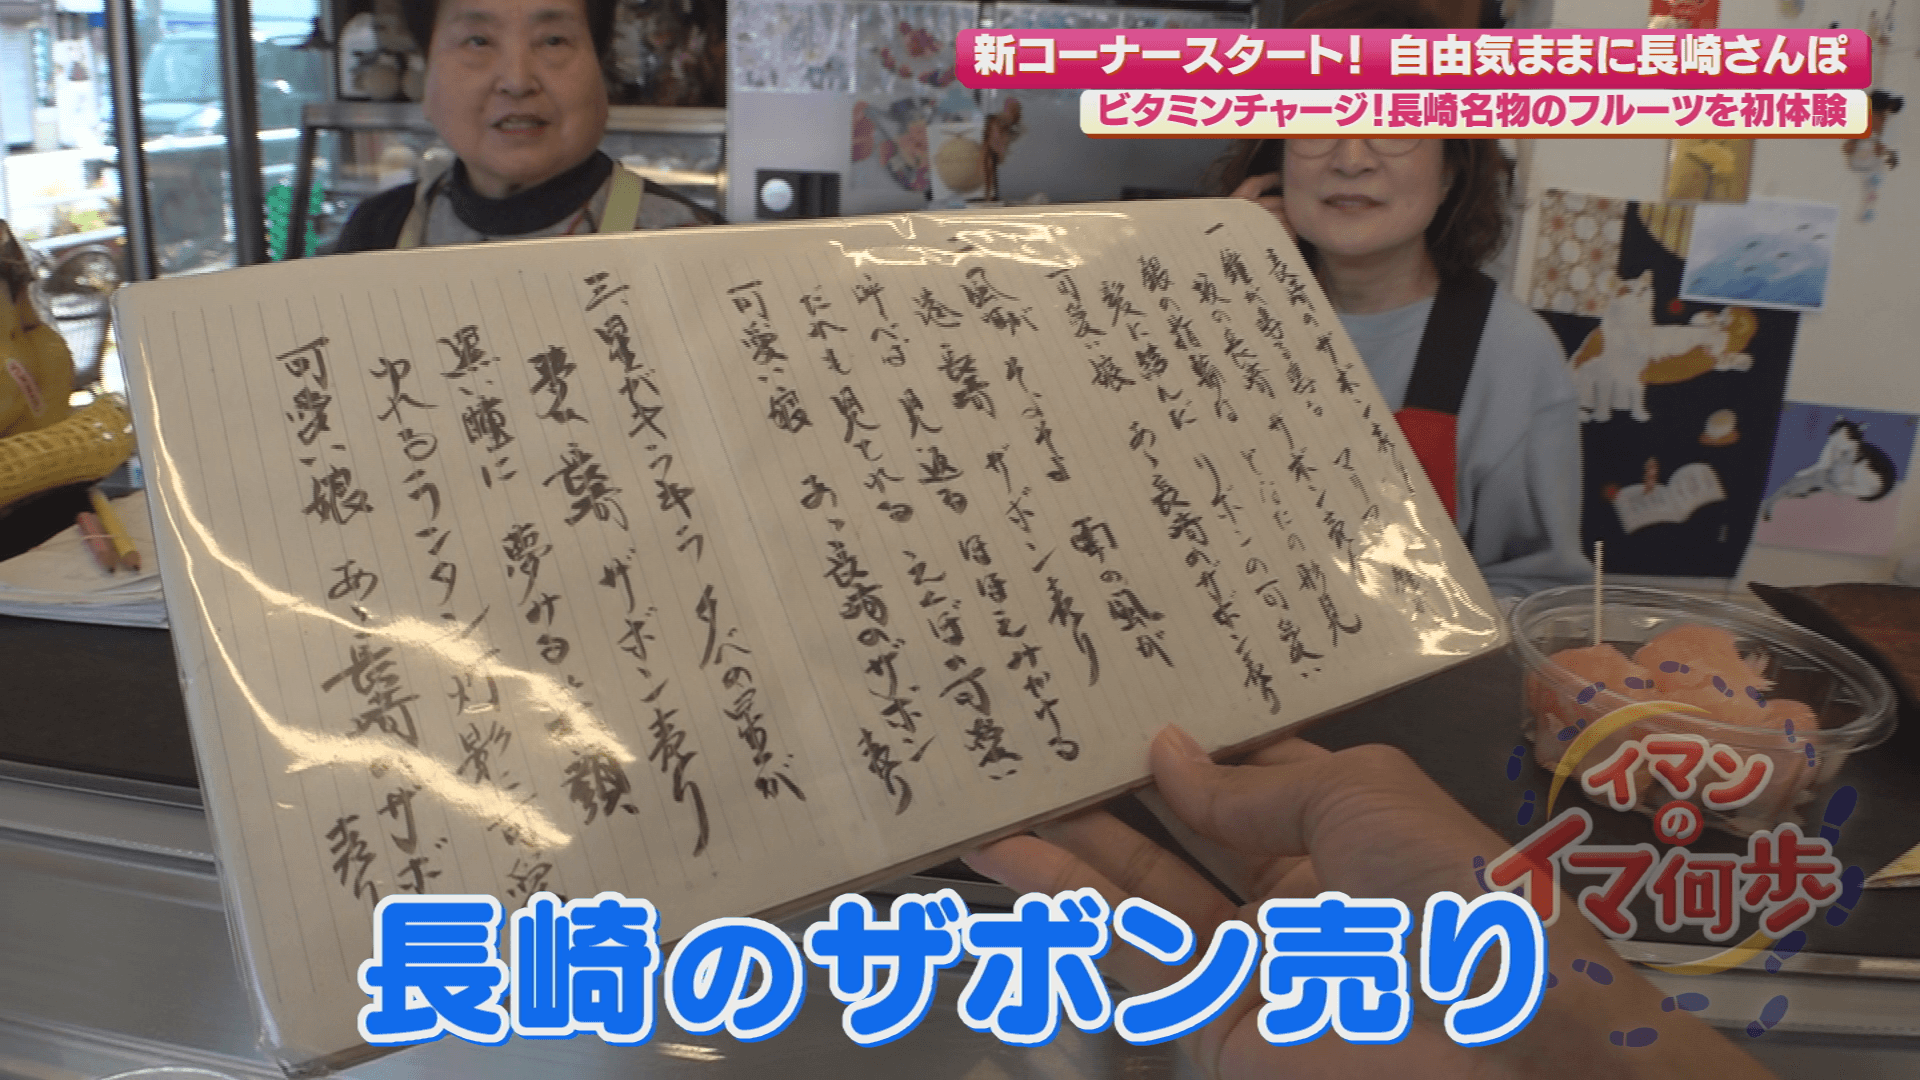 新コーナースタート! 自由気ままに長崎さんぽ
ビタミンチャージ!長崎名物のフルーツを初体験
長崎のザボン売り
一、鐘が鳴る鳴る マリアの鐘が
夜の長崎 ザボン売り
銀の指輪は どなたの形見
髪に結んだ リボンの可愛い
可愛い娘 あゝ長崎のザボン売り
二、風がそよそよ 南の風が
港長崎 ザボン売り
呼べば見返る ほほえみかける
だれも見とれる えくぼの可愛い
可愛い娘 あゝ長崎のザボン売り
三、星がキラキラ 夕べの星が
夢の長崎 ザボン売り
黒い瞳に 夢みる笑顔
ゆれるランタン 灯影に可愛
可愛い娘 あゝ長崎のザボ
売り
長崎のザボン売り
イマン
の
イマ何歩